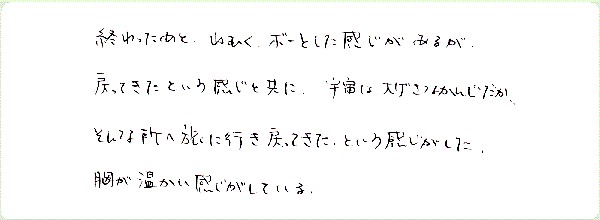 終わったあと、しばらく、ボーとした感じがあるが、
戻ってきたという感じと共に、宇宙は大げさなかんじだが、
そんな所へ旅に行き戻ってきた、という感じがした。
胸が温かい感じがしている。